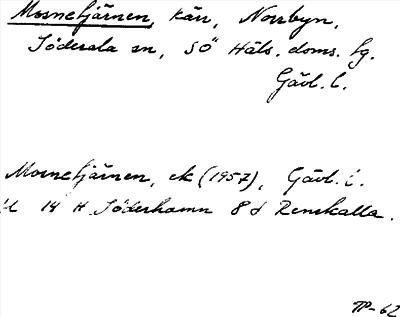 Mosnetjärnen, kärr, Norrbyn,
Söderala sn, SÖ Häls. doms. hg.
Gävl. l.
Mosnetjärnen, ek (1957), Gävl. l.
14 H Söderhamn 8 d Renskalla.
TP-62